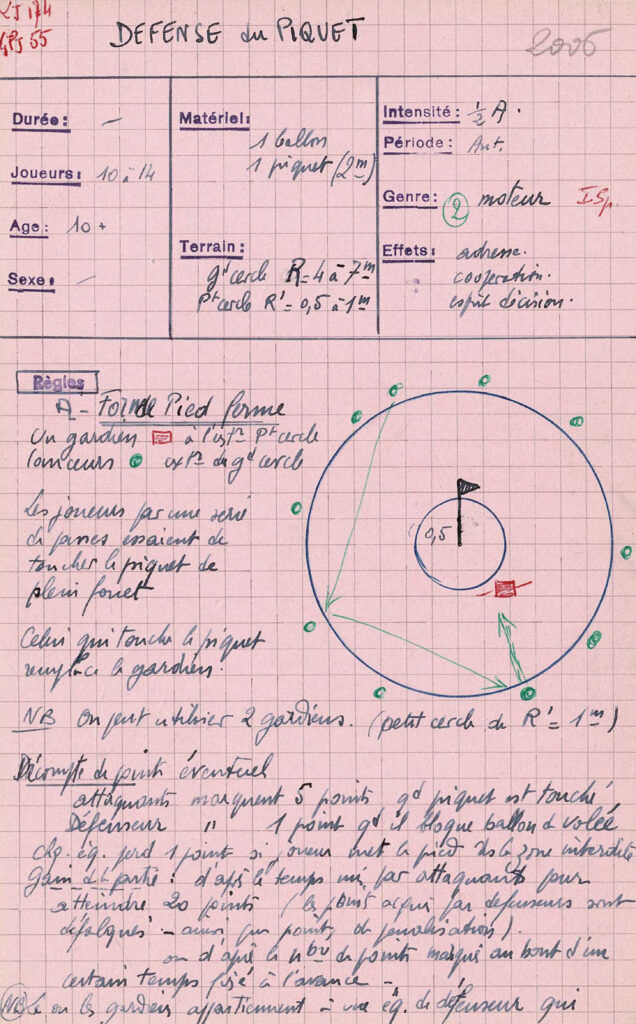 LJ 174
GPJ 55
DEFENSE du PIQUET
2006
Durée : -
Joueurs : 10 à 14
Age : 10 +
Sexe : -
Matériel :
1 ballon
1 piquet (2m)
Terrain :
gd cercle R = 4 à 7m
Pt cercle R' = 0,5 à 1m
Intensité : ½ A.
Période : Ant.
Genre : 2 moteur I.Sp.
Effets : adresse.
cooperation.
esprit décision.
Règles
A - Forme de Pied ferme
Un gardien à l'extr Pt cercle
lanceurs extr du gd cercle
Les joueurs par une série
de passes essaient de
toucher le piquet de
plein fouet
Celui qui touche le piquet
remplace le gardien.
0,5
NB On peut utiliser 2 gardiens. (petit cercle de R' = 1m)
Décompte de points éventuel
attaquants marquent 5 points gd piquet est touché
Défenseur " 1 point gd il bloque ballon de volée
chq. éq. perd 1 point si joueur met le pied ds la zone interdite
Gain de la partie : d'après le temps mis par attaquants pour
atteindre 20 points (les points acquis par défenseurs sont
défalqués - ainsi que points de pénalisation).
ou d'après le nbre de points marqué au bout d'un
certain temps fixé à l'avance -
NB le ou les gardiens appartiennent à une éq. de défenseur qui